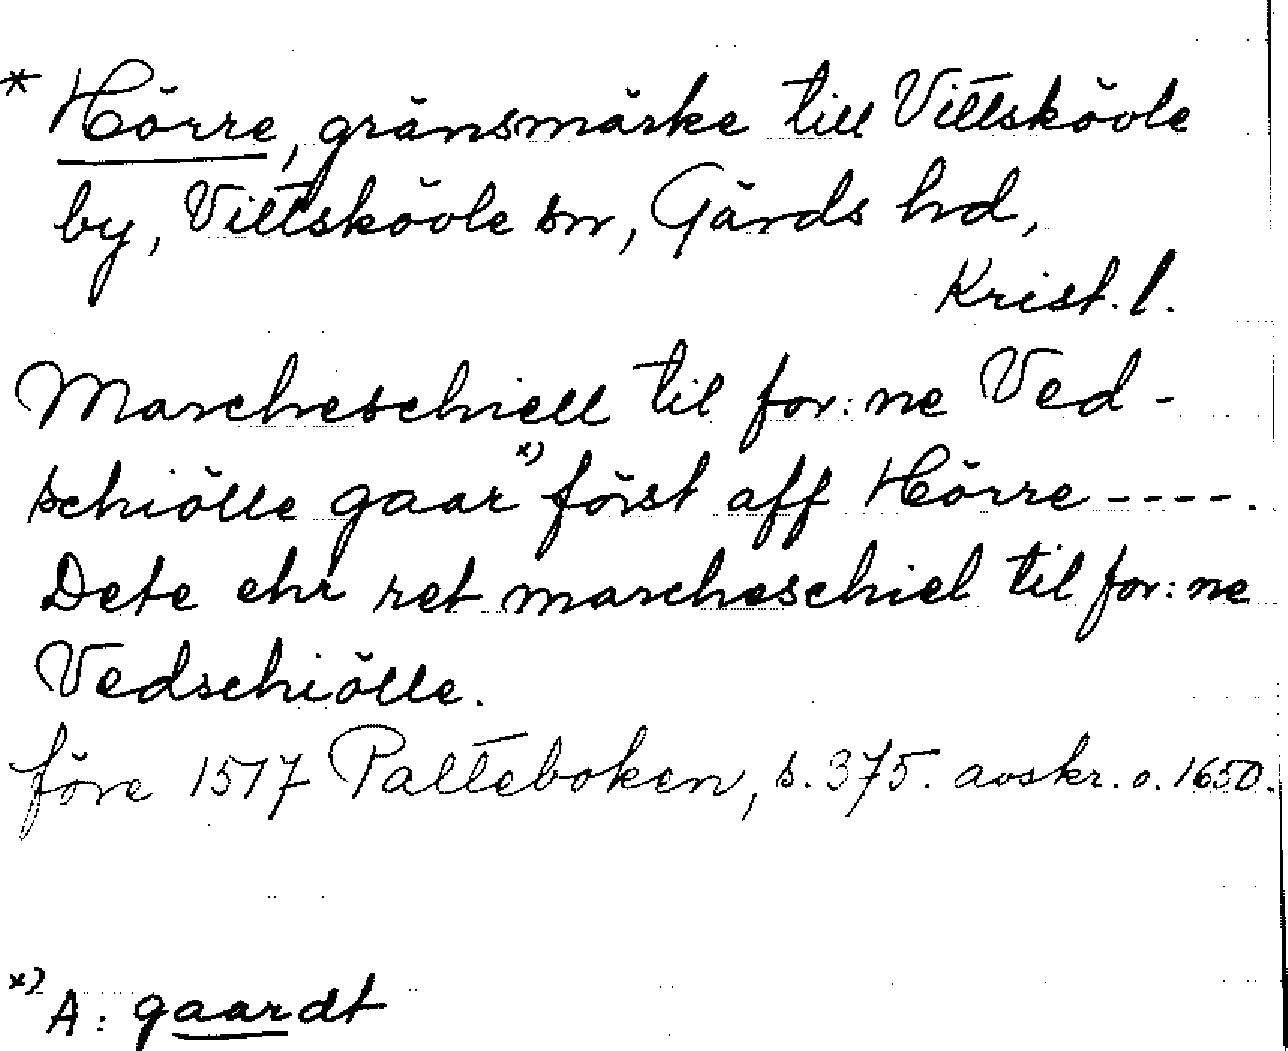 * Hörre, gränsmärke till Vittskövle
by, Vittskövle sn, Gärds hd,
Krist. l.
Marcheschiell til for:ne Ved-
schiölle gaar x) först aff Hörre ----.
Dete ehr ret marcheschiel til for:ne
Vedschiölle.
före 1517 Palteboken, s. 375. avskr. o. 1650.
x) A: gaardt